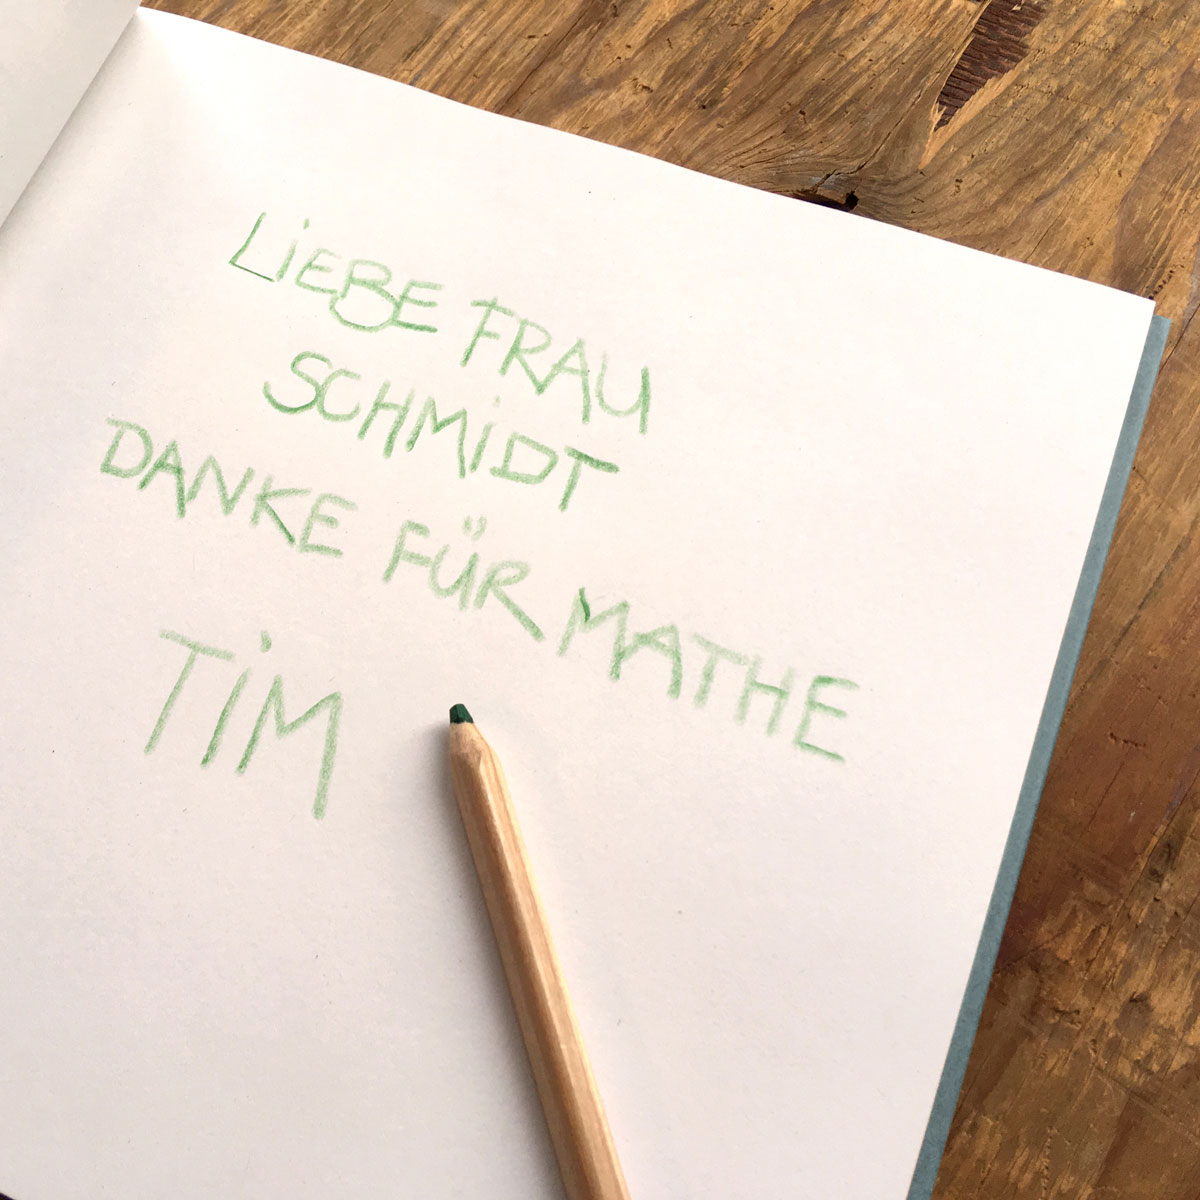 LiEBE FRAU
SCHMiDT
DANKE FÜR MATHE
TiM